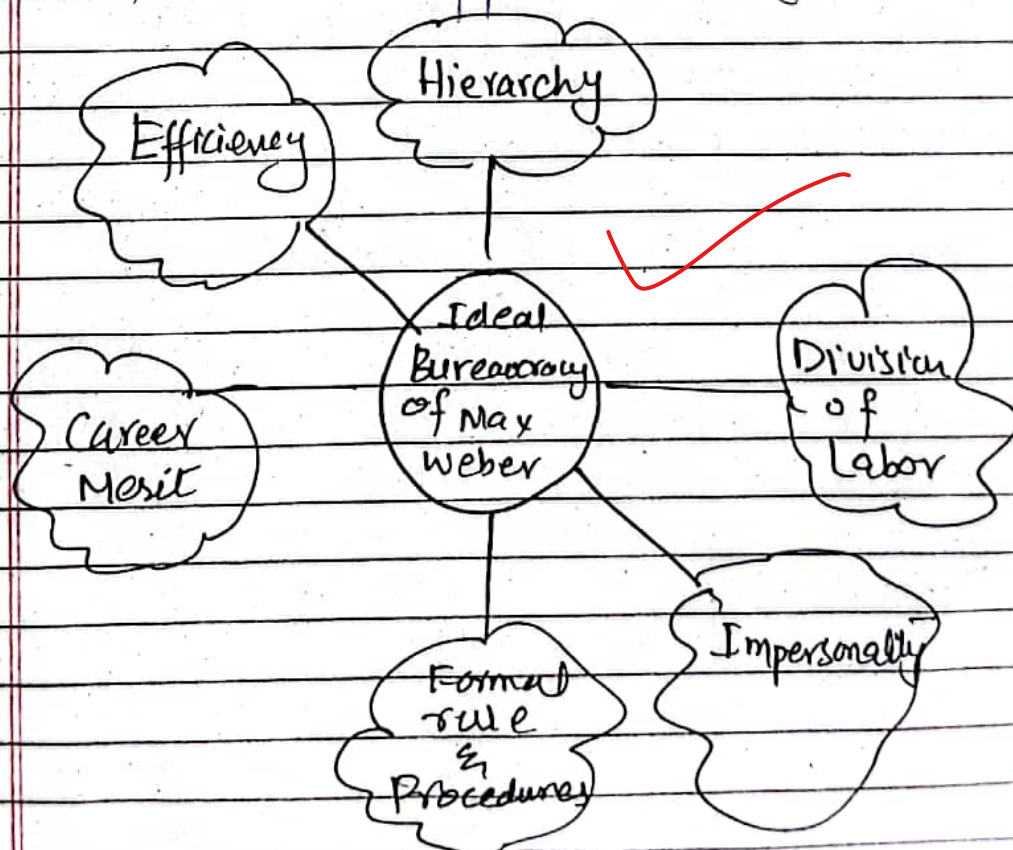 Hierarchy
Efficiency
Ideal
Bureaucracy
of Max
Weber
Division
of
Labor
Career
Merit
Impersonally
Formal
rule
&
Procedures